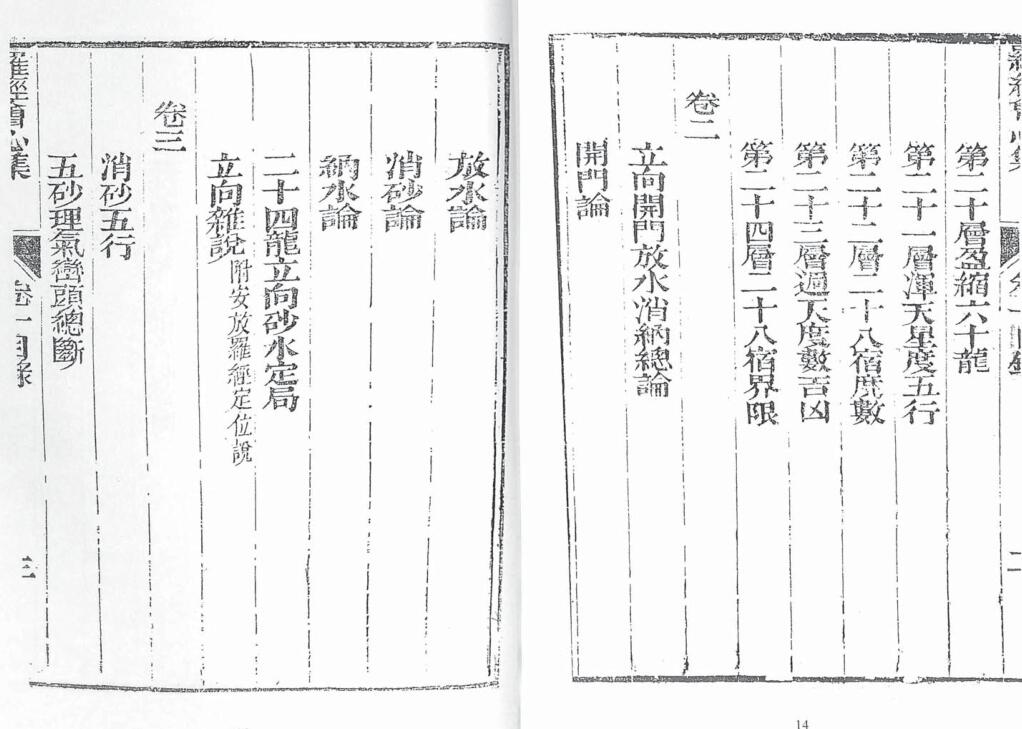 羅經會心集
二
第二十層盈縮六十龍
第二十一層渾天星度五行
第二十二層二十八宿度數
第二十三層過天度數吉凶
第二十四層二十八宿界限
卷二
立向開門放水消納總論
開門論
14
放水論
消砂論
納水論
二十四龍立向砂水定局
立向雜說附安放羅經定位說
卷三
消砂五行
五砂理氣巒頭總斷
羅經會心集
卷一目錄
三